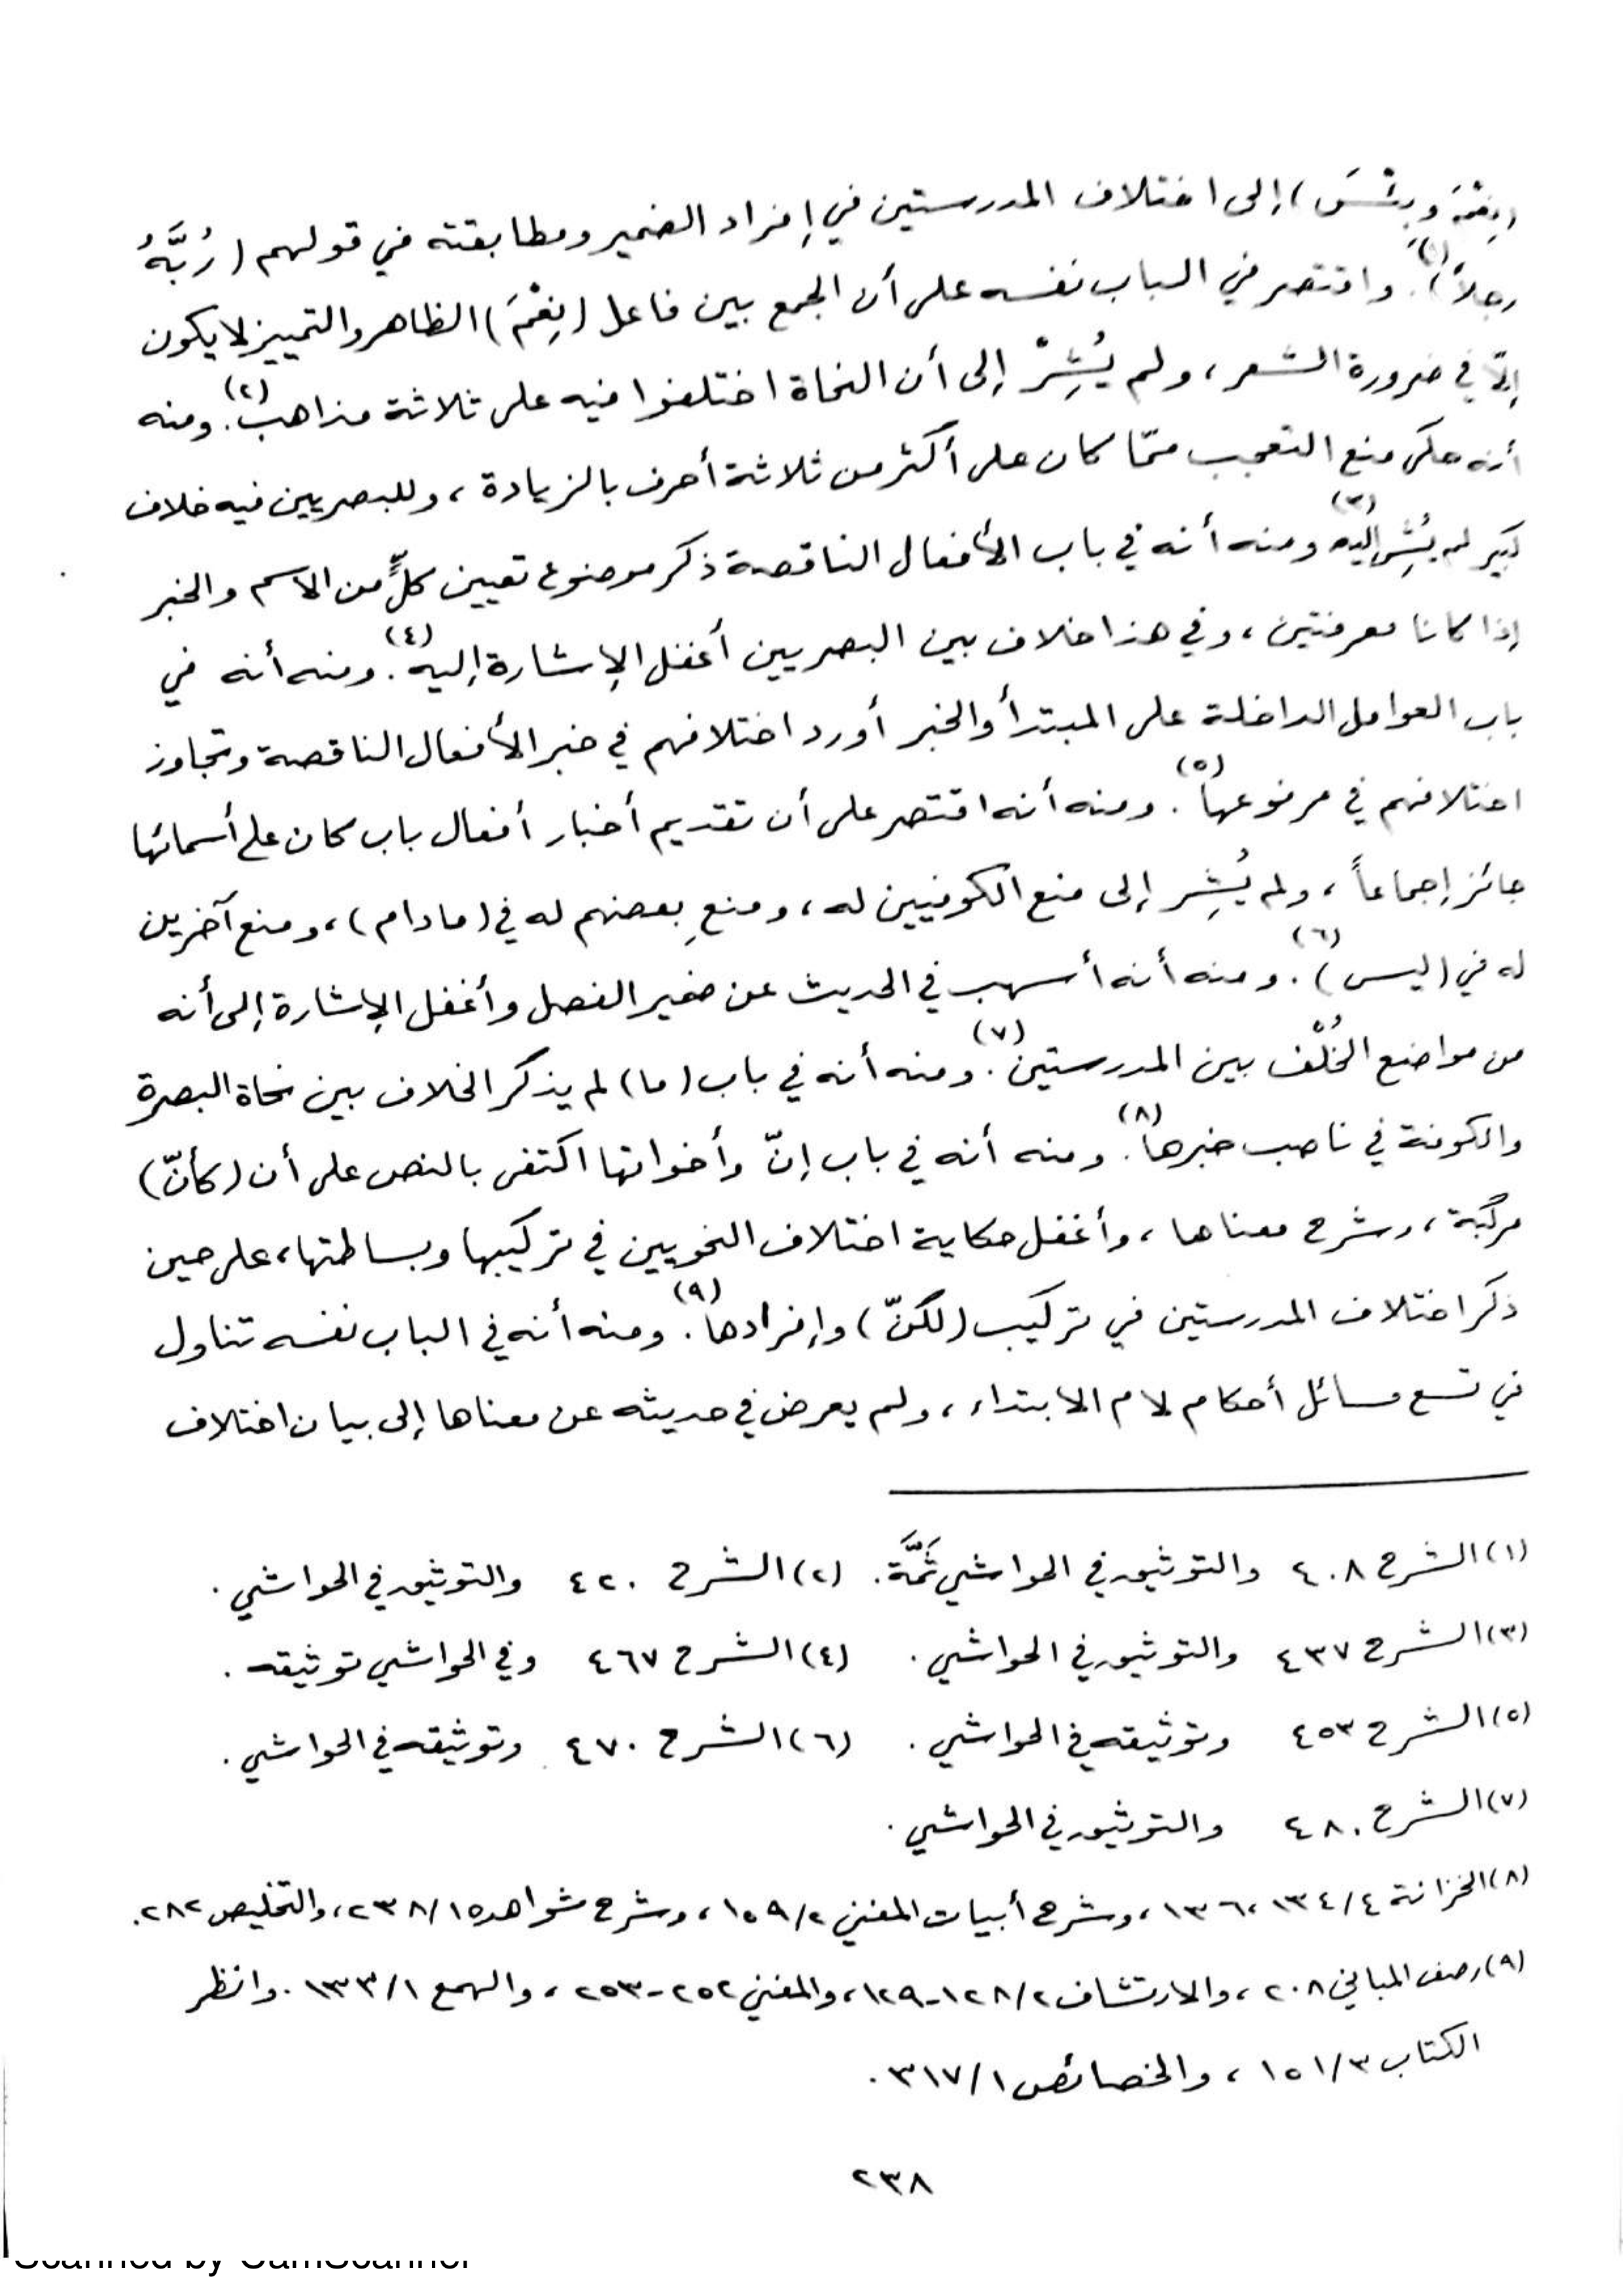 (نِعْمَ وبِئْسَ) إلى اختلاف المدرستين في إفراد الضمير ومطابقته في قولهم (رُبَّهُ
رجلاً)(١). واقتصر في الباب نفسه على أن الجمع بين فاعل (نِعْمَ) الظاهر والتمييز لا يكون
إلّا في ضرورة الشعر، ولم يُشِرْ إلى أن النحاة اختلفوا فيه على ثلاثة مذاهب(٢). ومنه
أنه حكى منع التعجب ممّا كان على أكثر من ثلاثة أحرف بالزيادة، وللبصريين فيه خلاف
كبير لم يُشِر إليه(٣) ومنه أنه في باب الأفعال الناقصة ذكر موضوع تعيين كلٍّ من الاسم والخبر
إذا كانا معرفتين، وفي هذا خلاف بين البصريين أغفل الإشارة إليه(٤). ومنه أنه في
باب العوامل الداخلة على المبتدأ والخبر أورد اختلافهم في خبر الأفعال الناقصة وتجاوز
اختلافهم في مرفوعها(٥). ومنه أنه اقتصر على أن تقديم أخبار أفعال باب كان على أسمائها
جائز إجماعاً، ولم يُشِر إلى منع الكوفيين له، ومنعِ بعضهم له في (مادام)، ومنع آخرين
له في (ليس)(٦). ومنه أنه أسهب في الحديث عن ضمير الفصل وأغفل الإشارة إلى أنه
من مواضع الخُلْف بين المدرستين(٧). ومنه أنه في باب (ما) لم يذكر الخلاف بين نحاة البصرة
والكوفة في ناصب خبرها(٨). ومنه أنه في باب إنّ وأخواتها اكتفى بالنص على أن (كأنّ)
مركّبة، وشرح معناها، وأغفل حكاية اختلاف النحويين في تركيبها وبساطتها، على حين
ذكر اختلاف المدرستين في تركيب (لكنّ) وإفرادها(٩). ومنه أنه في الباب نفسه تناول
في تسع مسائل أحكام لام الابتداء، ولم يعرض في حديثه عن معناها إلى بيان اختلاف
(١) الشرح ٤٠٨ والتوثيق في الحواشي ثَمَّةَ. (٢) الشرح ٤٢٠ والتوثيق في الحواشي.
(٣) الشرح ٤٣٧ والتوثيق في الحواشي. (٤) الشرح ٤٦٧ وفي الحواشي توثيقه.
(٥) الشرح ٤٥٣ وتوثيقه في الحواشي. (٦) الشرح ٤٧٠ وتوثيقه في الحواشي.
(٧) الشرح ٤٨٠ والتوثيق في الحواشي.
(٨) الخزانة ٤/١٣٤، ١٣٦، وشرح أبيات المغني ٢/١٥٩، وشرح شواهده ١/٢٣٨، والتخليص ٢٨٢.
(٩) رصف المباني ٢٠٨، والارتشاف ٢/١٢٨-١٢٩، والمغني ٢٥٢-٢٥٣، والهمع ١/١٣٣. وانظر
الكتاب ٣/١٥١، والخصائص ١/٣١٧.
٢٣٨
Scanned by CamScanner